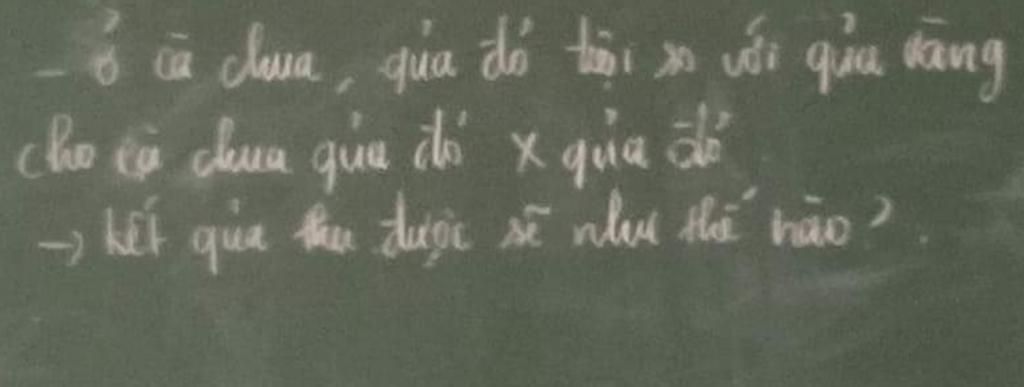 - Ở cà chua, quả đỏ trội so với quả vàng
cho cà chua quả đỏ x quả đỏ
→ kết quả thu được sẽ như thế nào?.